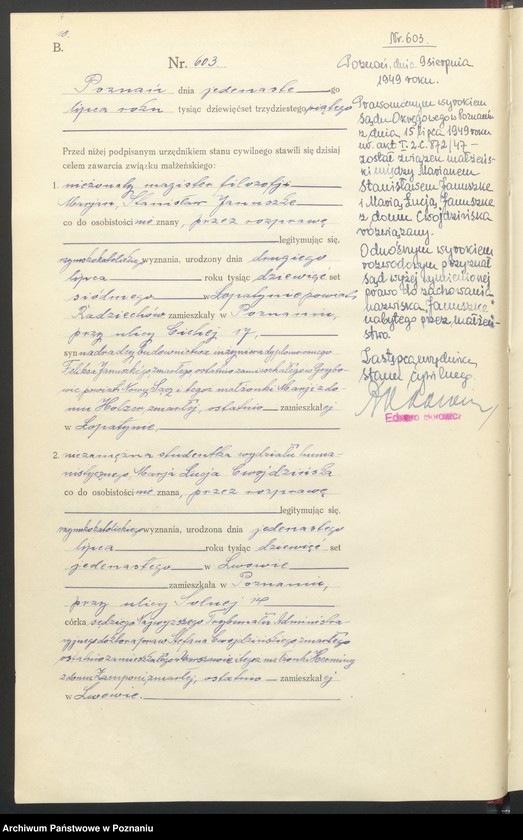 B.
Nr. 603
Poznań dnia jedenaste go
lipca roku tysiąc dziewięćset trzydziestego piątego
Przed niżej podpisanym urzędnikiem stanu cywilnego stawili się dzisiaj
celem zawarcia związku małżeńskiego:
1. nieżonaty magister filozofji
Marjan Stanisław Januszke
co do osobistości nie znany, przez rozprawę
legitymując się,
rzymskokatolickiego wyznania, urodzony dnia drugiego
lipca roku tysiąc dziewięć set
siódmego w Łopatynie powiatu
Radziechów zamieszkały w Poznaniu,
przy ulicy Cichej 17,
syn nadradcy budownictwa inżyniera dyplomowanego
Feliksa Januszki zmarłego, ostatnio zamieszkałego w Grybo-
wie powiat Nowy Sącz i tegoż małżonki Marji z do-
mu Holzer zmarłej, ostatnio zamieszkałej
w Łopatynie,
2. niezamężna studentka wydziału huma-
nistycznego Marja Lucja Cwojdzińska
co do osobistości nie znana, przez rozprawę
legitymując się,
rzymskokatolickiego wyznania, urodzona dnia jedenastego
lipca roku tysiąc dziewięć set
jedenastego w Lwowie
zamieszkała w Poznaniu,
przy ulicy Solnej 14
córka sędziego Najwyższego Trybunału Administra-
cyjnego doktora praw Stefana Cwojdzińskiego zmarłego
ostatnio zamieszkałego w Warszawie i tegoż małżonki Herminy
z domu Zamponi, zmarłej, ostatnio zamieszkałej
w Lwowie.
Nr. 603.
Poznań, dnia 9 sierpnia
1949 roku.
Prawomocnym wyrokiem
Sądu Okręgowego w Poznaniu
z dnia 15 lipca 1949 roku
nr. akt I. 2. C. 872/47 –
został związek małżeń-
ski między Marianem
Stanisławem Januszke
i Marią Lucją Januszke
z domu Cwojdzińska
rozwiązany.
Odnośnym wyrokiem
rozwodowym przyznał
sąd wyżej wymienionej
prawo do zachowania
nazwiska "Januszke"
nabytego przez małżeń-
stwo.
Zastępca urzędnika
stanu cywilnego
Edward Borowicz
Archiwum Państwowe w Poznaniu